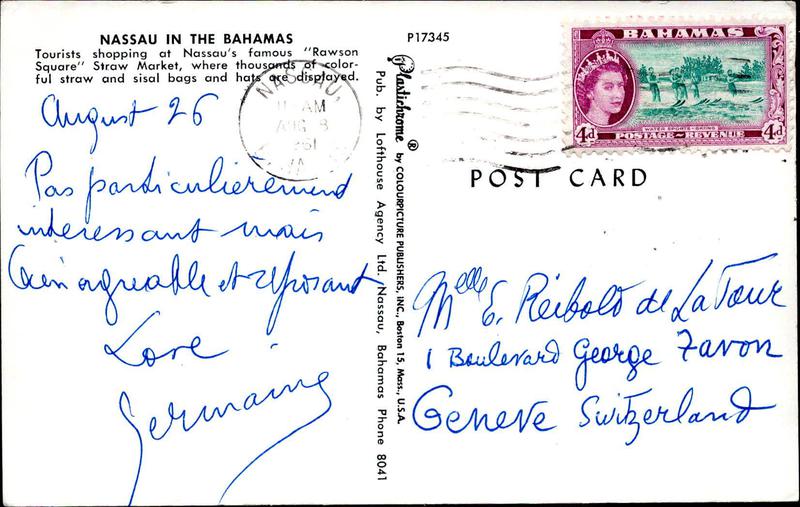 NASSAU IN THE BAHAMAS
Tourists shopping at Nassau's famous "Rawson
Square" Straw Market, where thousands of color-
ful straw and sisal bags and hats are displayed.
August 26
Pas particulièrement
interessant mais
bien agreable et reposant
Love
Germaine
P17345
Plastichrome ® by COLOURPICTURE PUBLISHERS, INC., Boston 15, Mass., U.S.A.
Pub. by Lofthouse Agency Ltd. Nassau, Bahamas Phone 8041
NASSAU,
AM
AUG 8
BAHAMAS
4d
WATER SPORTS - SKIING
4d
POSTAGE REVENUE
POST CARD
Melle E. Reibold de La Tour
1 Boulevard George Favon
Geneve Switzerland